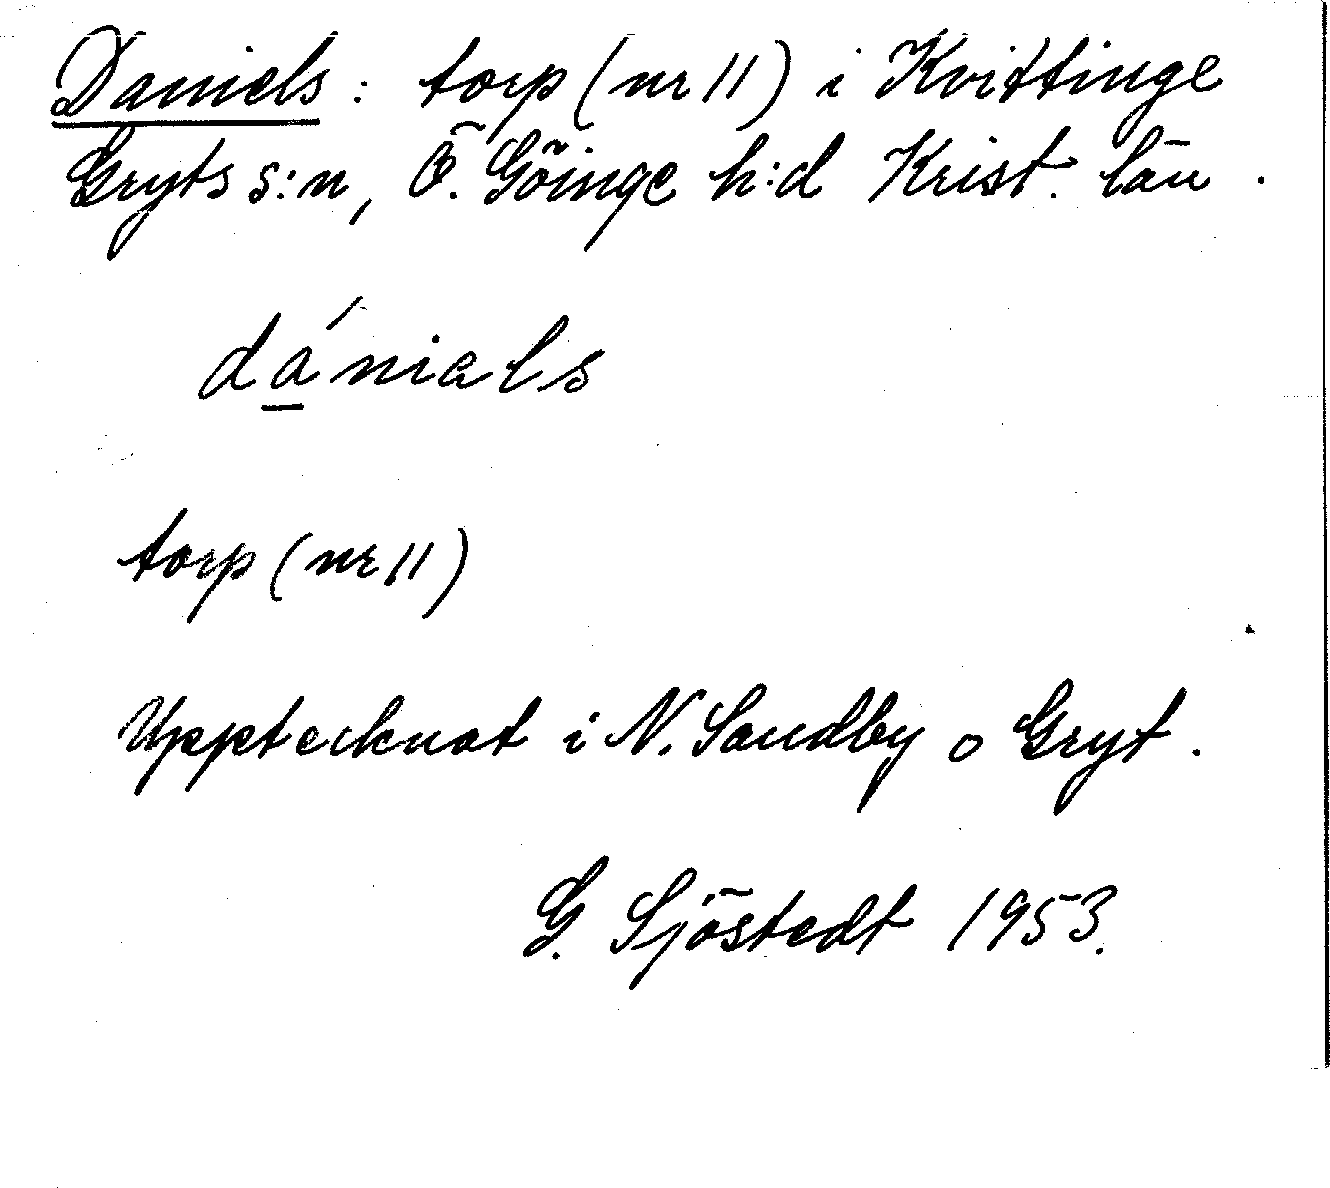 Daniels: torp (nr 11) i Kvittinge
Gryts s:n, Ö. Göinge h:d Krist. län.
dá̱niəls
torp (nr 11)
Upptecknat i N. Sandby o Gryt.
G. Sjöstedt 1953.